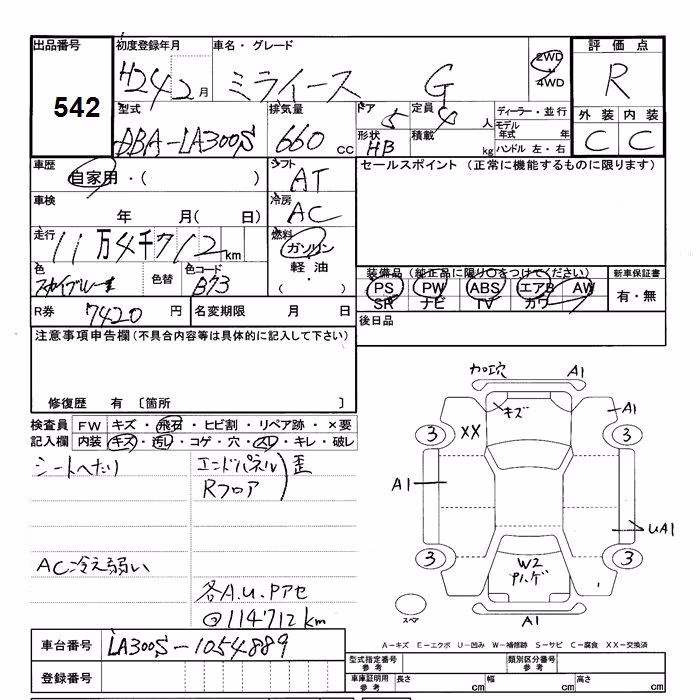 出品番号
542
初度登録年月
H24年2月
車名・グレード
ミライース G
2WD
4WD
評価点
R
外装 内装
C C
型式
DBA-LA300S
排気量
660 cc
ドア 5
定員 4 人
形状 HB
積載 kg
ディーラー・並行
モデル年式 年
ハンドル 左・右
車歴
自家用・( )
シフト
AT
セールスポイント (正常に機能するものに限ります)
車検
年 月( 日)
冷房
AC
走行
11万4千712km
燃料
ガソリン
軽油
・( )
色
スカイブルーM
色替
色コード
B73
装備品 (純正品に限り○をつけてください)
新車保証書
PS PW ABS エアB AW
SR ナビ TV カワ
有・無
R券 7420 円
名変期限 月 日
後日品
注意事項申告欄(不具合内容等は具体的に記入して下さい)
修復歴 有 〔箇所 〕
検査員
記入欄
FW キズ・飛石・ヒビ割・リペア跡・×要
内装 キズ・汚れ・コゲ・穴・スレ・キレ・破レ
シートへたり
エンドパネル
Rフロア
歪
AC冷え弱い
各A.U.Pアセ
@114712km
カロ穴 A1
キズ
A1
XX
3 3
A1
UA1
3 3
W2
P.ハゲ
スペア
A1
A-キズ E-エクボ U-凹み W-補修跡 S-サビ C-腐食 XX-交換済
車台番号 LA300S-1054889
登録番号
型式指定番号
参考
類別区分番号
参考
車庫証明用
参考
長さ cm 幅 cm 高さ cm